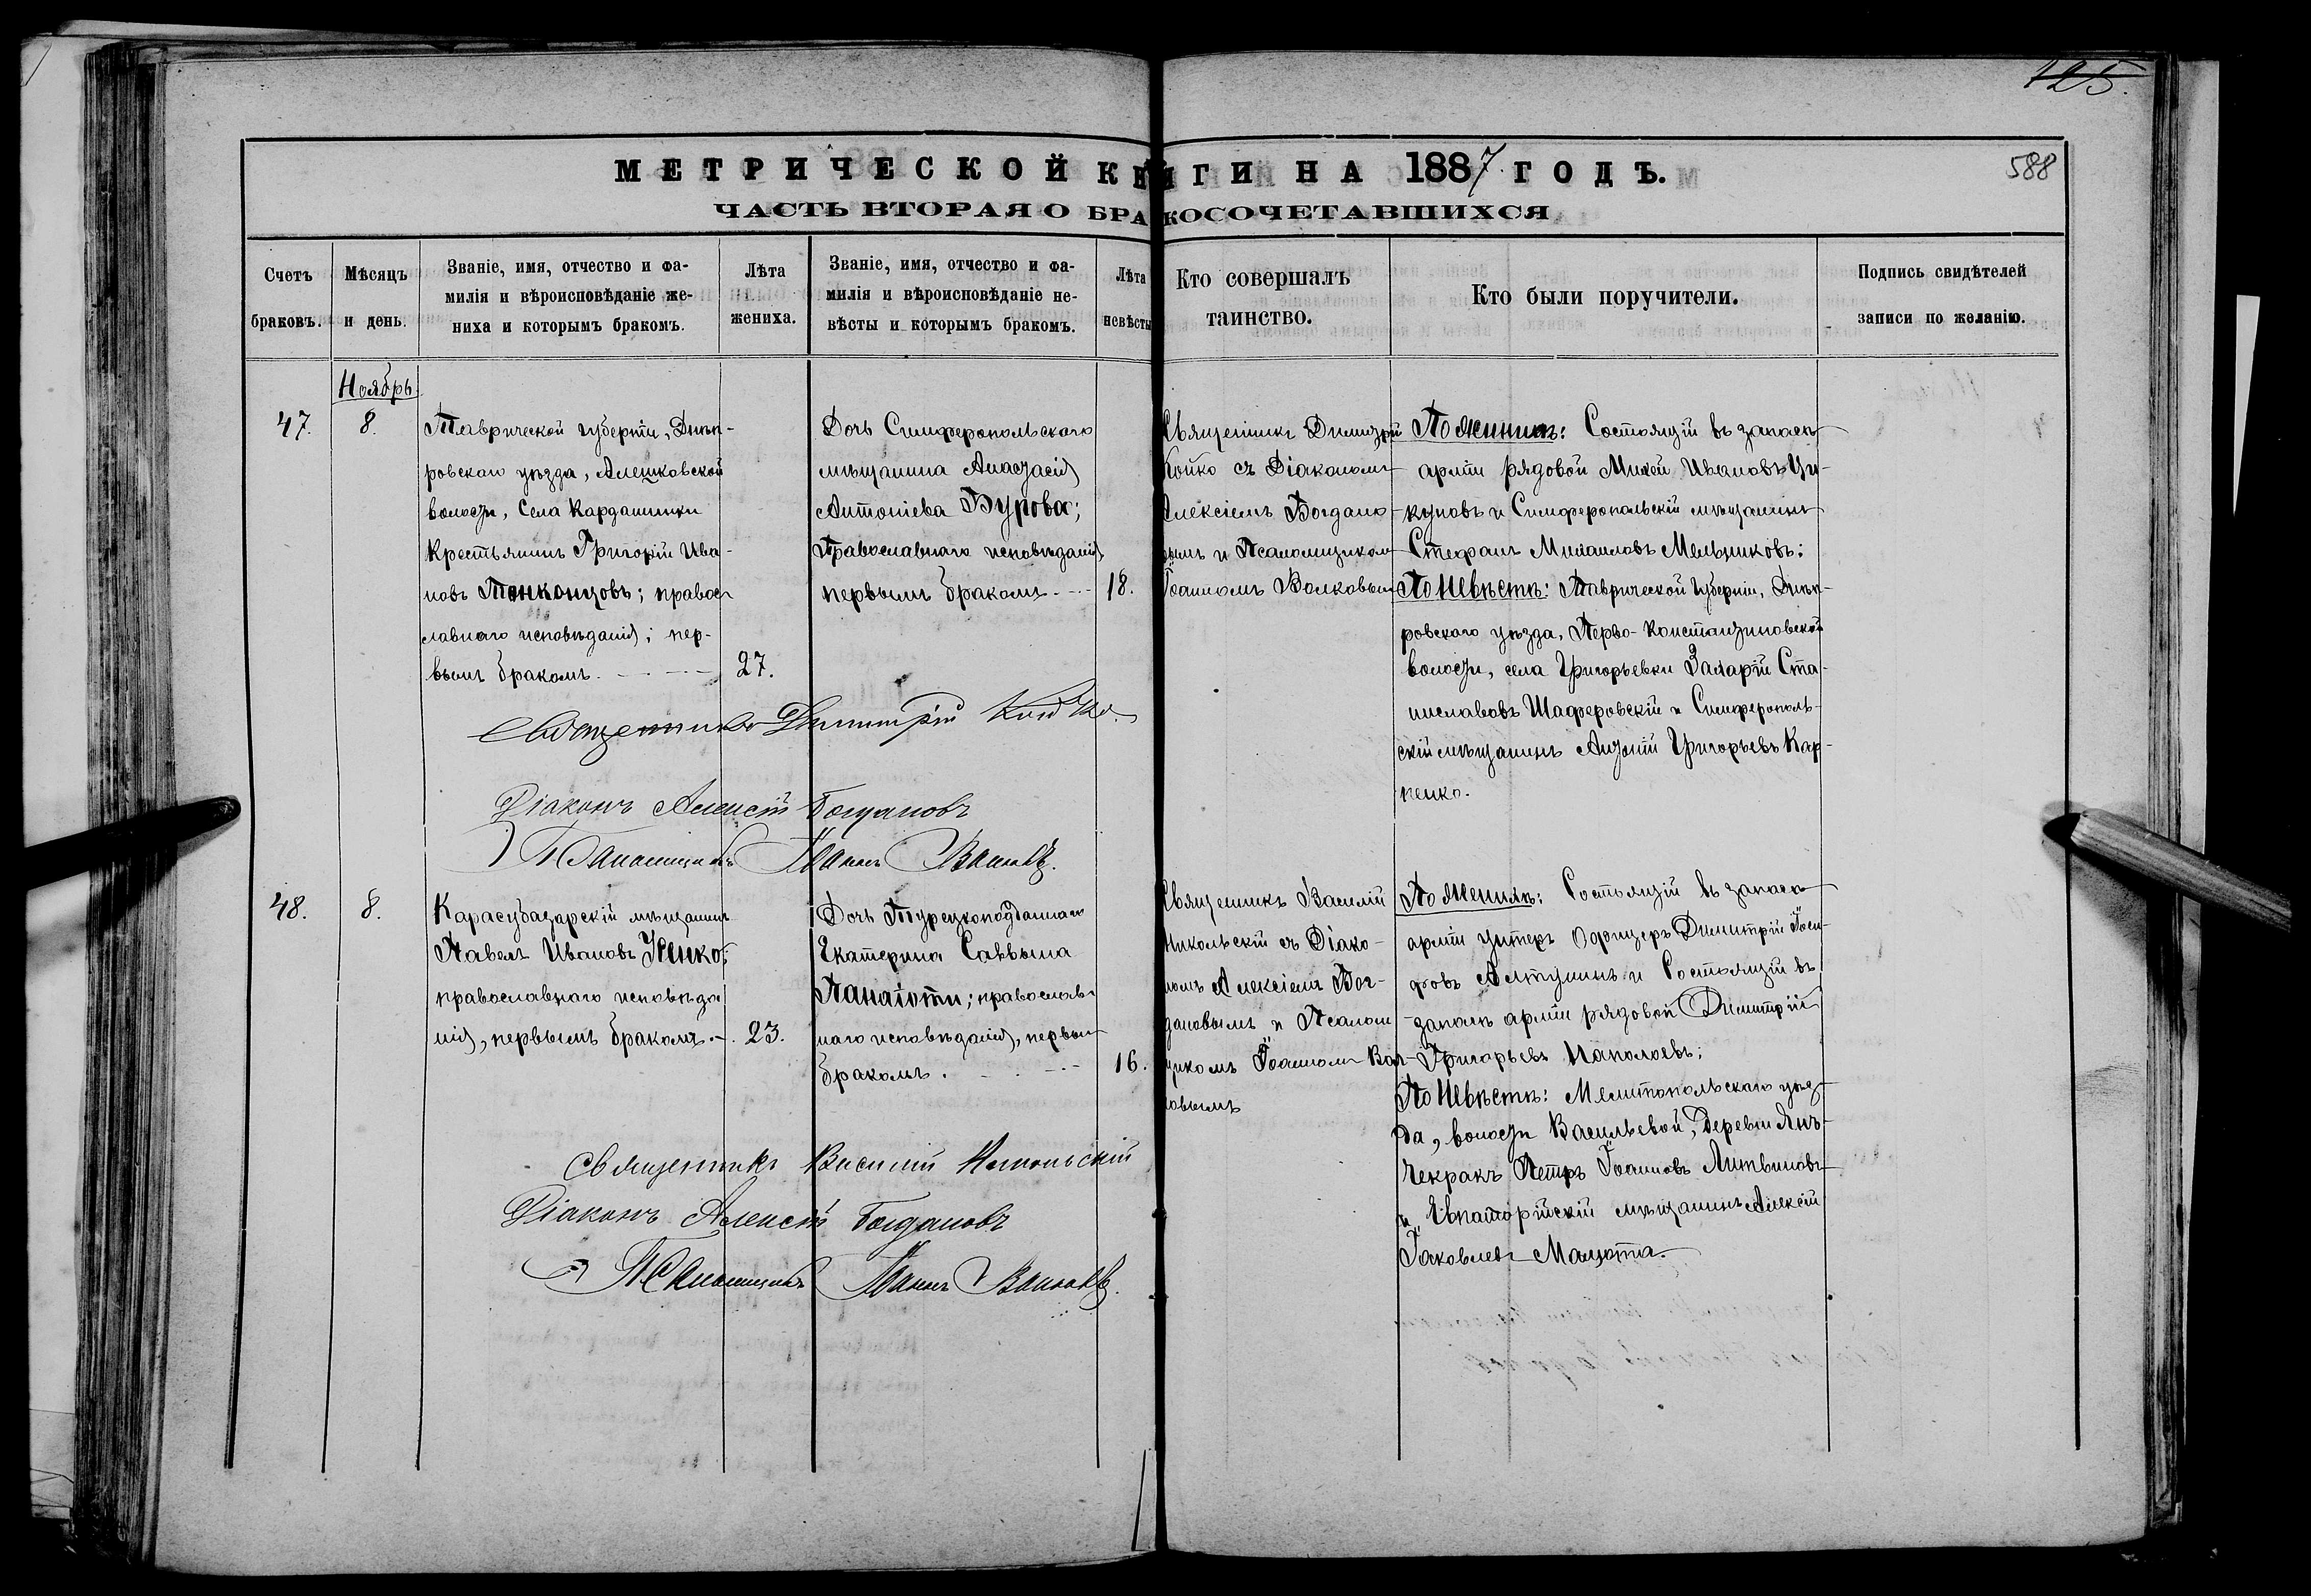 125.
588
МЕТРИЧЕСКОЙ КНИГИ НА 1887 ГОДЪ.
ЧАСТЬ ВТОРАЯ О БРАКОСОЧЕТАВШИХСЯ
Счетъ
браковъ.
Мѣсяцъ
и день.
Званіе, имя, отчество и фа-
милія и вѣроисповѣданіе же-
ниха и которымъ бракомъ.
Лѣта
жениха.
Званіе, имя, отчество и фа-
милія и вѣроисповѣданіе не-
вѣсты и которымъ бракомъ.
Лѣта
невѣсты
Кто совершалъ
таинство.
Кто были поручители.
Подпись свидѣтелей
записи по желанію.
Ноябрь
47.
8.
Таврической губерніи, Днѣп-
ровскаго уѣзда, Алешковской
волости, Села Кардашинки
крестьянинъ Григорій Ива-
новъ Тонконоговъ; правос-
лавнаго исповѣданія; пер-
вымъ бракомъ.
27.
Дочь Симферопольскаго
мѣщанина Анастасія
Антоніева Бурова;
Православнаго исповѣданія,
первымъ бракомъ.
18.
Священникъ Димитрій
Койко съ Діакономъ
Алексіемъ Богдано-
вымъ и Псаломщикомъ
Іоанномъ Волковымъ
По Женихѣ: Состоящій въ запасѣ
арміи рядовой Михей Ивановъ Цу-
куновъ и Симферопольскій мѣщанинъ
Стефанъ Михаиловъ Мельниковъ;
По Невѣстѣ: Таврической Губерніи, Днѣп-
ровскаго уѣзда, Перво-Константиновской
волости, села Григорьевки Захарій Ста-
ниславовъ Шаферовскій и Симферополь-
скій мѣщанинъ Антоній Григорьевъ Кар-
пенко.
Священникъ Димитрій Койко.
Діаконъ Алексій Богдановъ
Псаломщикъ Іоаннъ Волковъ.
48.
8.
Карасубазарскій мѣщанинъ
Павелъ Ивановъ Ненко;
православнаго исповѣда-
нія, первымъ бракомъ.
23.
Дочь Турецкоподданнаго
Екатерина Саввина
Панаіоти; православ-
наго исповѣданія, первым
бракомъ.
16.
Священникъ Василій
Никольскій съ Діако-
номъ Алексіемъ Бог-
дановымъ и Псалом
щикомъ Іоанномъ Вол-
ковымъ
По Женихѣ: Состоящій въ запасѣ
арміи унтеръ Офицеръ Димитрій
Алтунинъ и Состоящій въ
запасѣ арміи рядовой Димитрій
Григорьевъ Наполоевъ;
По Невѣстѣ: Мелитопольскаго уѣз-
да, волости Васильевой, Деревни Янъ-
Чекракъ Петръ Іоанновъ Литвиновъ
и Евпаторійскій мѣщанинъ Алексій
Іаковлевъ Мацота.
Священникъ Василій Никольскій
Діаконъ Алексій Богдановъ
Псаломщикъ Іоаннъ Волковъ.